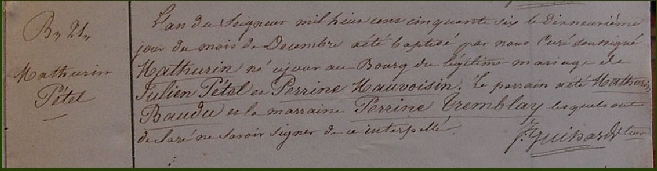 B. 21.
Mathurin
Pétel
L'an du Seigneur mil huit cent cinquante six le dixneuvième
jour du mois de Décembre a été baptisé par nous Curé soussigné
Mathurin né ce jour au Bourg du légitime mariage de
Julien Pétel et Perrine Hauvoisin. Le parrain a été Mathurin
Baudu et la marraine Perrine Tremblay lesquels ont
declaré ne savoir signer de ce interpellé.